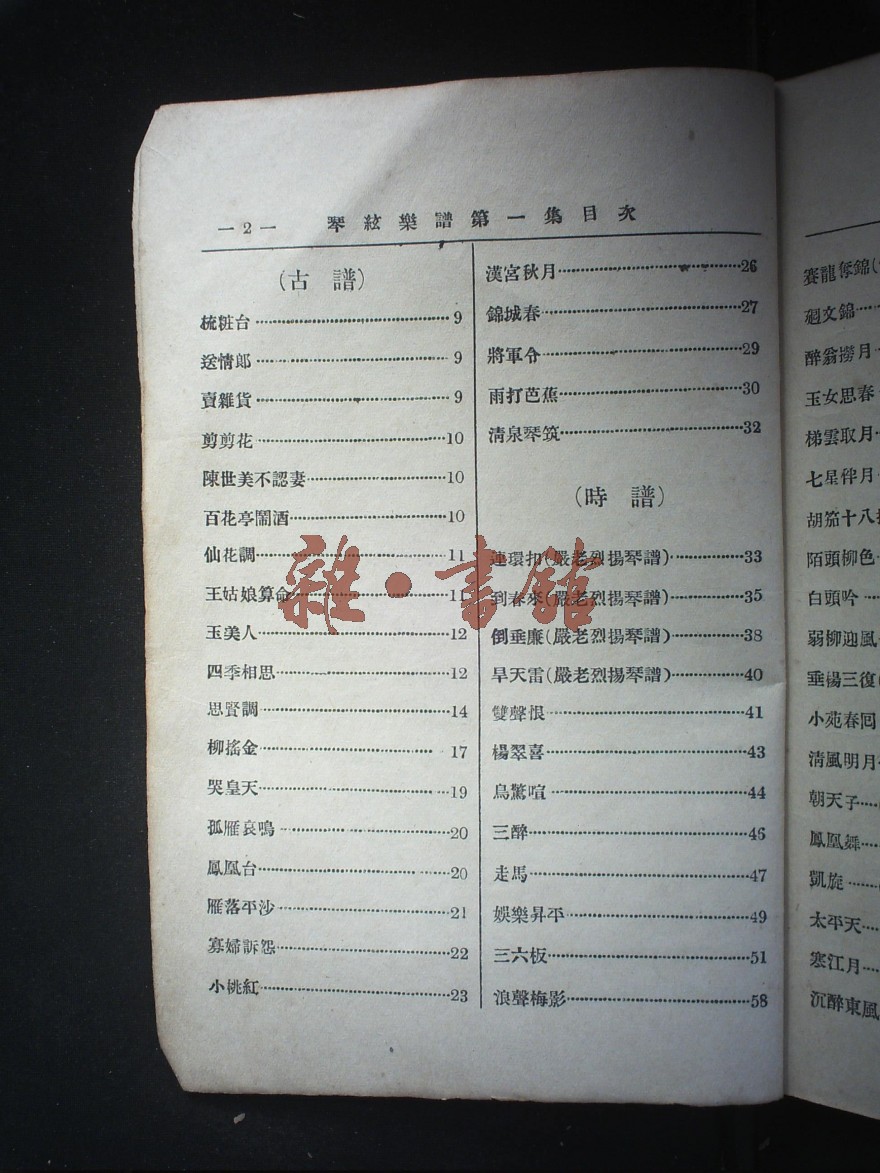 —2— 琴絃樂譜第一集目次
(古譜)
梳粧台 9
送情郎 9
賣雜貨 9
剪剪花 10
陳世美不認妻 10
百花亭鬧酒 10
仙花調 11
王姑娘算命 11
玉美人 12
四季相思 12
思賢調 14
柳搖金 17
哭皇天 19
孤雁哀鳴 20
鳳凰台 20
雁落平沙 21
寡婦訴怨 22
小桃紅 23
漢宮秋月 26
錦城春 27
將軍令 29
雨打芭蕉 30
清泉琴筑 32
(時譜)
連環扣(嚴老烈揚琴譜) 33
到春來(嚴老烈揚琴譜) 35
倒垂廉(嚴老烈揚琴譜) 38
旱天雷(嚴老烈揚琴譜) 40
雙聲恨 41
楊翠喜 43
鳥驚喧 44
三醉 46
走馬 47
娛樂昇平 49
三六板 51
浪聲梅影 58
賽龍奪錦(
廻文錦
醉翁撈月
玉女思春
梯雲取月
七星伴月
胡笳十八
陌頭柳色
白頭吟
弱柳迎風
垂楊三復
小苑春回
清風明月
朝天子
鳳凰舞
凱旋
太平天
寒江月
沉醉東風
雜·書館